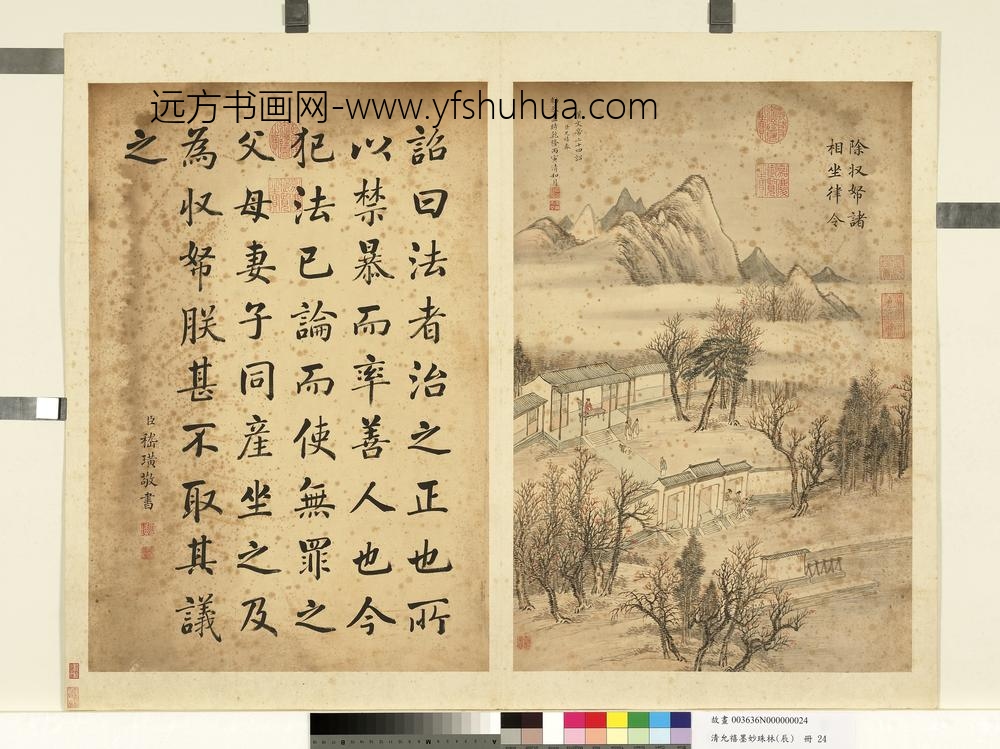 远方书画网-www.yfshuhua.com
詔曰法者治之正也所
以禁暴而率善人也今
犯法已論而使無罪之
父母妻子同産坐之及
為収帑朕甚不取其議
之
臣嵇璜敬書
除収帑諸
相坐律令
文帝二十四詔
乾隆丙寅清和月
故畫 003636N000000024
清允禧墨妙珠林(辰) 冊 24